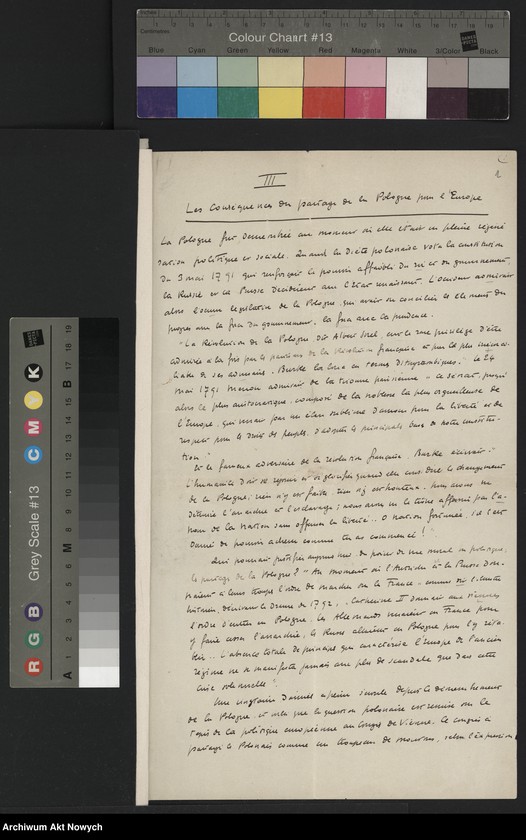 Inches
Centimetres
Colour Chart #13
Blue Cyan Green Yellow Red Magenta White 3/Color Black
Grey Scale #13
R G B C M Y K
A 1 2 3 4 5 6 M 8 9 10 11 12 13 14 15 B 17 18 19
2
III
Les Conséquences du partage de la Pologne pour l'Europe
La Pologne fut démembrée au moment où elle était en pleine régéné
ration politique et sociale. Quand la Diète polonaise vota la constitution
du 3 mai 1791 qui renforçait le pouvoir affaibli du roi et du gouvernement,
la Russie et la Prusse décidèrent
alors l'œuvre législative de la Pologne qui avait su concilier les éléments du
progrès avec la force du gouvernement, la
"La Révolution de la Pologne, dit Albert Sorel, eut le rare privilège d'être
admirée à la fois par les partisans de la révolution française et par les plus
de ses adversaires. Burke la loua en termes dithyrambiques." Le 24
mai 1791
alors le plus aristocratique, composé de la noblesse la plus orgueilleuse de
l'Europe, qui vient par un élan sublime d'amour pour la liberté et de
respect pour le droit de peuples, d'adopter les principales bases de notre constitu-
tion"
Et le fameux adversaire de la révolution française, Burke écrivait:
"L'humanité doit se réjouir et se glorifier quand elle considère le changement
de la Pologne; rien n'y est faible, rien n'y est honteux.
l'anarchie et l'esclavage; nous avons vu le trône affermi par l'u-
nion de la nation sans offenser la liberté... O nation fortunée, s'il t'est
donné de pouvoir achever comme tu as commencé!"
Qui pourrait justifier
le partage de la Pologne? "Au moment où l'Autriche et la Prusse don-
naient à leurs troupes l'ordre de marcher sur la France - comme
historien, décrivant le drame de 1792, - Catherine II donnait aux siennes
l'ordre d'entrer en Pologne. Les Allemands venaient en France pour
y faire cesser l'anarchie, les Russes allaient en Pologne pour l'y réta-
blir... L'absence totale de principes qui caractérise l'Europe de l'ancien
régime ne se manifesta jamais avec plus de scandale que dans cette
crise solennelle".
Une vingtaine d'années à peine s'écoule depuis le démembrement
de la Pologne, et voilà que la question polonaise est remise sur le
tapis de la politique européenne au Congrès de Vienne. Le congrès a
partagé les Polonais comme un troupeau de moutons, selon l'expression
Archiwum Akt Nowych